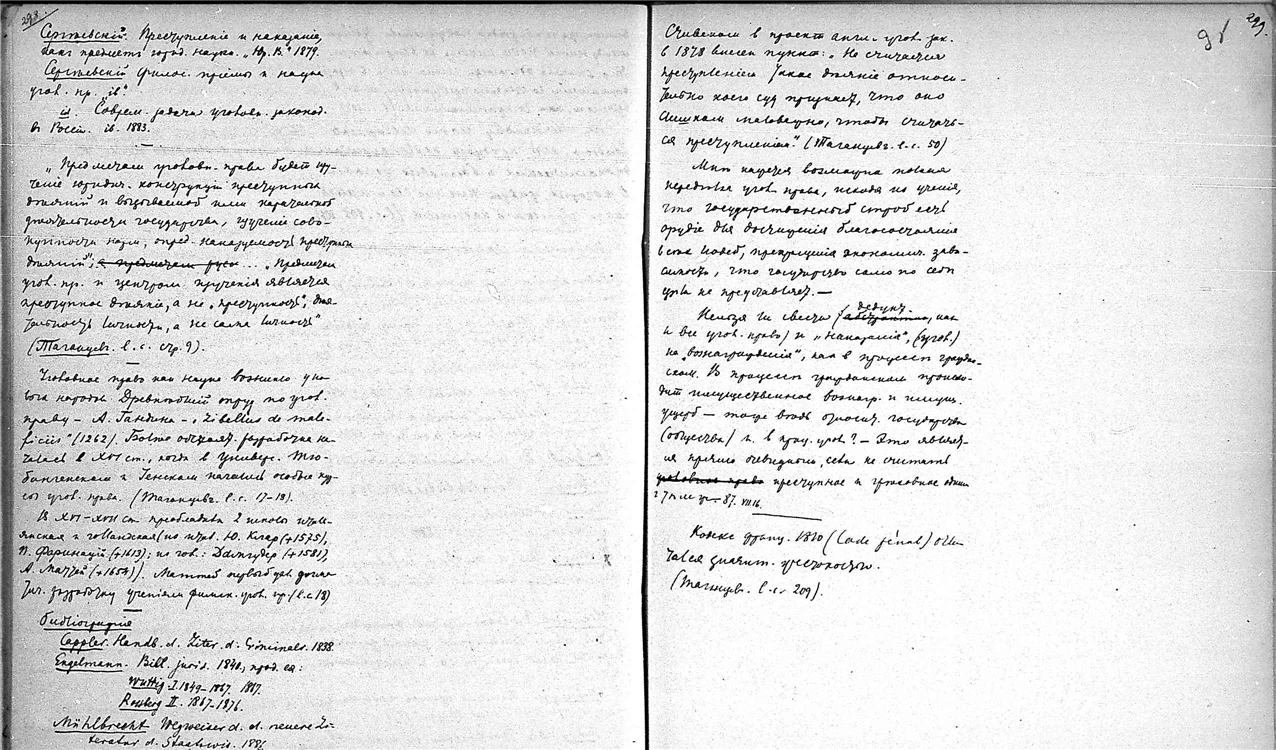 298.
Сергѣевскій. Преступленіе и наказаніе,
какъ предметъ юрид. науки. „Юр. В." 1879.
Сергѣевскій филос. пріемы и наука
угол. пр. „ib"
id. Соврем. задачи уголовн. законод.
въ Россіи. ib. 1883.
„Предметомъ уголовн. права будетъ изу-
ченіе юридич. конструкціи преступныхъ
дѣяній и вызываемой ими карательной
дѣятельности государства, изученіе сово-
купности норм, опред. наказуемость преступныхъ
дѣяній"; ... „Предметом
угол. пр. и центромъ изученія является
преступное дѣяніе, а не „преступность", дѣя-
тельность личности, а не сама личность"
(Таганцевъ. l. c. стр. 9).
Уголовное право как наука возникло у но-
вых народов Древнѣйшій по угол.
праву – А. Гандина – „Libellus de male-
ficiis" (1262). Болѣе разработка на-
чалась в XVI ст., когда в универс. Тю-
бингенском и Іенском начались особые кур-
сы угол. права. (Таганцевъ. l. c. 17-18).
В XVI-XVII ст. преобладали 2 школы италь-
янская и голландская (из итал. Ю. Кларъ (+1575),
П. Фаринацій (+1613); из гол.: Дамгудер (+1581),
А. Маттей (+1654)). Маттей первый догма-
тич. разработку угол. пр. (l.c. 18)
Библіографія
Cappler. Handb. d. Liter. d. Criminalr. 1838.
Engelmann. Bibl. jurid. 1840, прод. ея:
Wuttig I. 1849-1867. 1867.
Rossberg II. 1867-1876.
Mühlbrecht Wegweiser d. d. neuere Li-
teratur d. Staatswis. 1886
299.
91
Стивеном в проект англ. угол. зак.
в 1878 внесен пункт: „Не считается
преступленіем такое дѣяніе относи-
тельно коего суд признает, что оно
слишком маловажно, чтобы считать-
ся преступленіем." (Таганцевъ. l. c. 50)
Мнѣ кажется возможна полная
передѣлка угол. права, исходя из ученія,
что государственный строй есть
орудіе для достиженія благосостоянія
всѣх людей, прекращенія экономич. зави-
симости, что государство само по себѣ
цѣли не представляет. —
Нельзя ли свести (дедукт., как
и все угол. право) и „наказанія", (угол.)
на „вознагражденія", как в процессѣ граждан-
ском. В процессѣ гражданском происхо-
дит имущественное вознагр. и имущ.
ущерб — тоже вродѣ относит. государства
(общества) и. в прав. угол.? — Это являет-
ся прямо очевидным, если не считать
уголовное право преступное и граждан­ское одним
87. VIII.16.
Кодекс франц. 1810 (Code pénal) отли-
чался значит. жестокостью.
(Таганцев. l. c. 209).